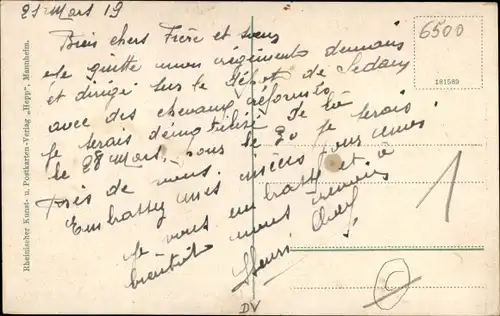 25 Mars 19
Biens chers Frère et soeur
Je quitte mon régiments demain
et dirigé sur le Dépôt de Sedan
avec des chevaux réformés
Je serais démobilisé de là
le 28 Mars, pour le 30 je serais
près de vous.
Embrassez mes nièces pour moi
Je vous embrasse et à
bientôt vous revoir
Henri
6500
181589
1
C
DV
Rheinischer Kunst- u. Postkarten-Verlag „Hepp“, Mannheim.